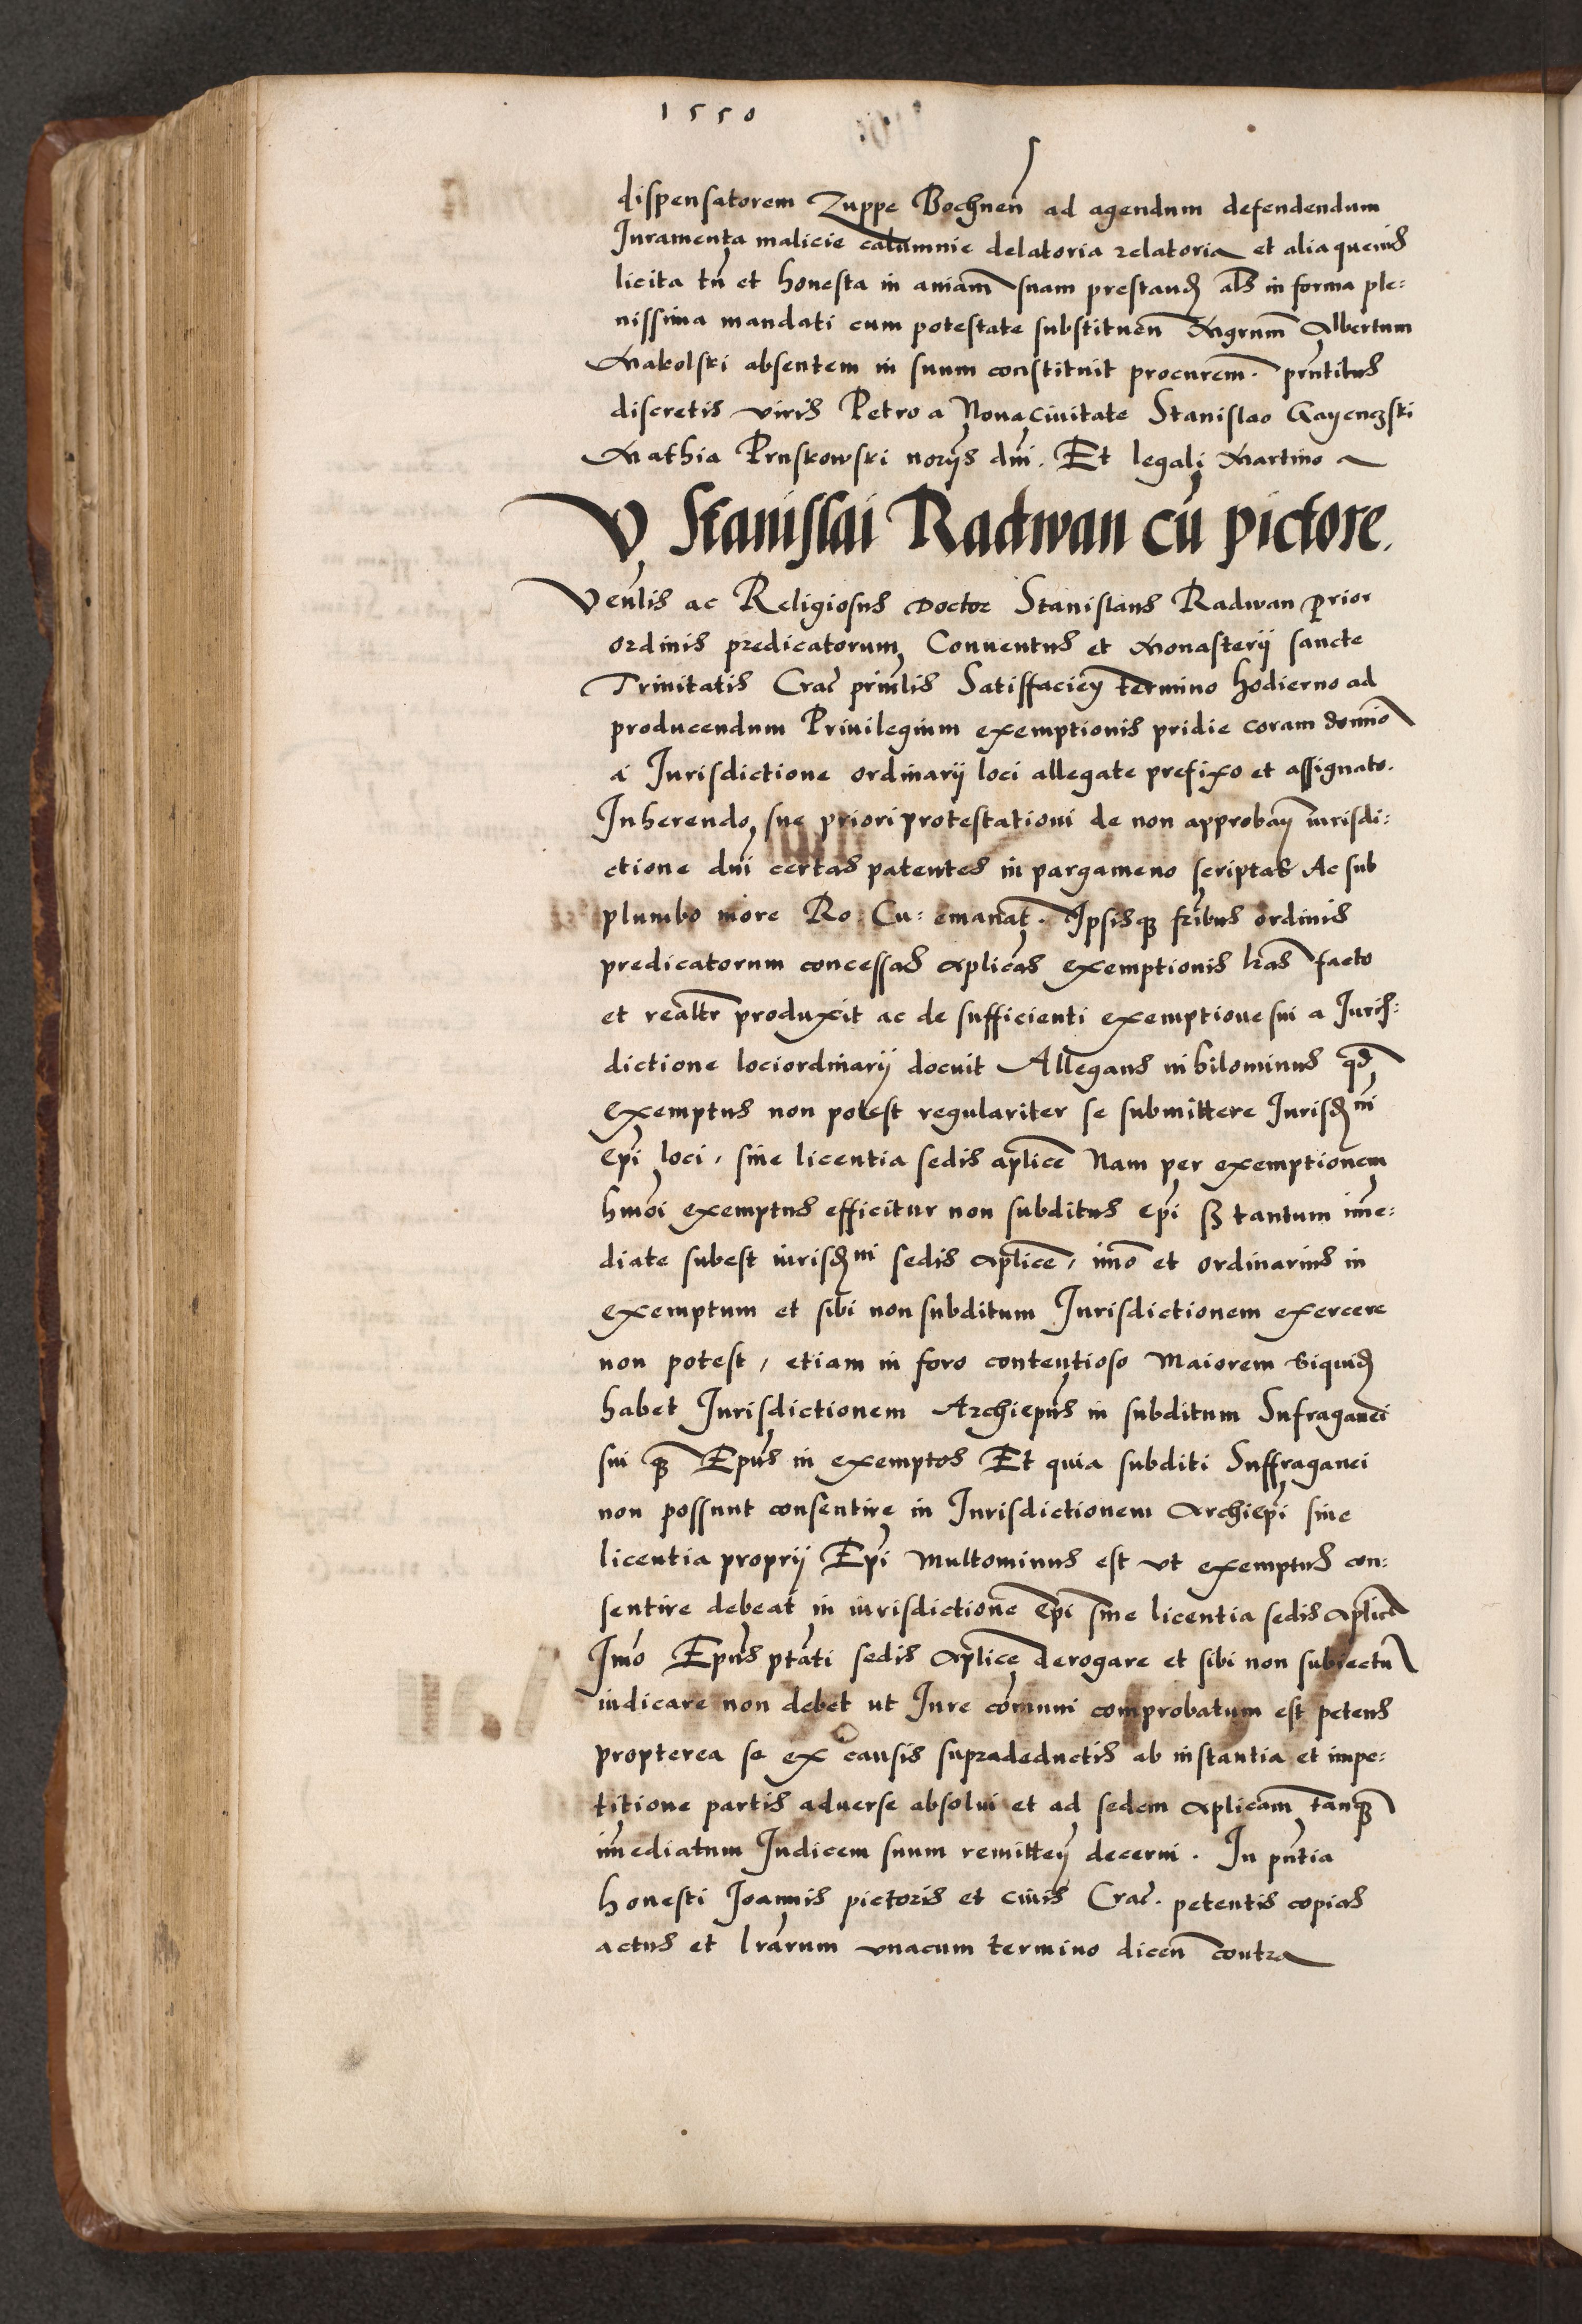 1550
dispensatorem Zuppe Bochnen̄ ad agendum defendendum
Juramenta malicie calumnie delatoria relatoria et alia queuis
licita tn̄ et honesta in aniam̄ suam prestanđ als in forma ple:
nissima mandati cum potestate substituen̄ Mgrum̄ Albertum
Makolski absentem in suum constituit procurem̄. pn̄tibus
discretis viris Petro a Noua Ciuitate Stanislao Gayenczski
Mathia Pruskowski norijs dn̄i. Et legali Martino
V Stanislai Radwan cū pictore.
Ven̄lis ac Religiosus Doctor Stanislaus Radwan Prior
ordinis predicatorum Conuentus et Monasterij sancte
Trinitatis Crac̄ prin̄lis Satisfacien̄ termino hodierno ad
producendum Priuilegium exemptionis pridie coram domīo
a Jurisdictione ordinarij loci allegate prefixo et assignato.
Inherendo sue priori protestationi de non approban̄ iurisdi:
ctione dn̄i certas patentes in pargameno scriptas Ac sub
plumbo more Ro: Cu: emanat̄. Ipsisq̨ frībus ordinis
predicatorum concessas aplicas exemptionis lrās facto
et realtr̄ produxit ac de sufficienti exemptione sui a Juris:
dictione loci ordinarij docuit Allegans nihilominus qđ
exemptus non potest regulariter se submittere Jurisđni
ep̄i loci, sine licentia sedis aplice Nam per exemptionem
hmōi exemptus efficitur non subditus ep̄i sʒ tantum im̄e:
diate subest iurisđni sedis aplice, imo et ordinarius in
exemptum et sibi non subditum Jurisdictionem exercere
non potest, etiam in foro contentioso Maiorem siquiđ
habet Jurisdictionem Archiepus in subditum Sufraganei
sui q̨ Epus in exemptos Et quia subditi Suffraganei
non possunt consentire in Jurisdictionem Archiep̄i sine
licentia proprij Ep̄i Multominus est vt exemptus con:
sentire debeat in iurisdictione ep̄i sine licentia sedis aplice
Imo Epus ptāti sedis Aplice derogare et sibi non subiectū
iudicare non debet ut Jure cōmuni comprobatum est petens
propterea se ex causis supradeductis ab instantia et impe:
titione partis aduerse absolui et ad sedem aplicam tanq̨
im̄ediatum Judicem suum remitten̄ decerni. In pn̄tia
honesti Joannis pictoris et ciuis Crac̄. petentis copias
actus et lrārum vnacum termino dicen̄ contra